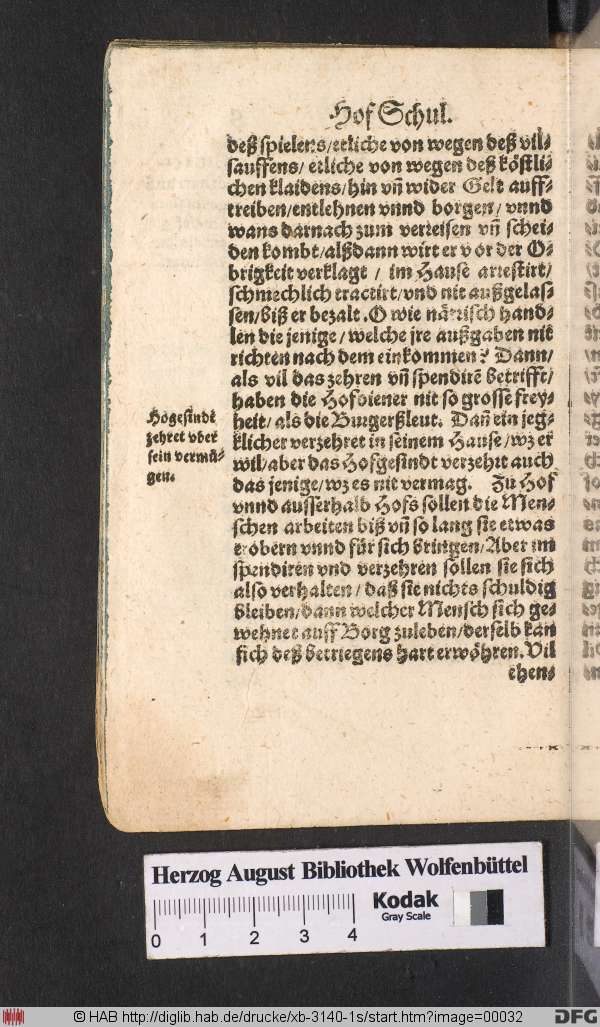 Hof Schul.
deß spielens/etliche von wegen deß vil-
sauffens/ etliche von wegen deß köstli-
chen klaidens/hin vñ wider Gelt auff-
treiben/entlehnen vnnd borgen/ vnnd
wans darnach zum verreisen vñ schei-
den kombt/alßdann wirt er vor der O-
brigkeit verklagt / im Hause arrestirt/
schmechlich tractirt/vnd nit außgelas-
sen/biß er bezalt. O wie närrisch hand-
len die jenige/ welche jre außgaben nit
richten nach dem einkommen? Dann/
als vil das zehren vñ spendirẽ betrifft/
haben die Hofdiener nit so grosse frey-
heit/ als die Burgerßleut. Dañ ein jeg-
klicher verzehret in seinem Hause/wz er
wil/aber das Hofgesindt verzehrt auch
das jenige/wz es nit vermag. Zu Hof
vnnd ausserhalb Hofs sollen die Men-
schen arbeiten biß vñ so lang sie etwas
erobern vnnd für sich bringen/Aber im
spendiren vnd verzehren sollen sie sich
also verhalten/ daß sie nichts schuldig
bleiben/dann welcher Mensch sich ge-
wehnet auff Borg zuleben/derselb kan
sich deß betriegens hart erwöhren. Vil
ehen-
Hogesindt
zehret vber
sein vermü-
gen.
Herzog August Bibliothek Wolfenbüttel
Kodak
Gray Scale
0 1 2 3 4
© HAB http://diglib.hab.de/drucke/xb-3140-1s/start.htm?image=00032
DFG